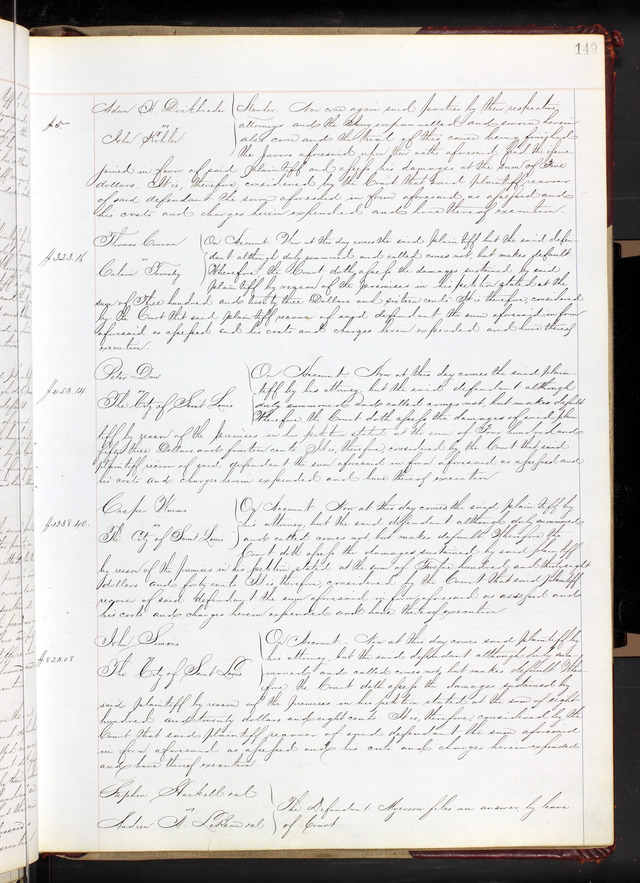 149
Adam H. Dickbrieder } Slander. Now come again said parties by their respective
$5. vs } attorneys and the Jury empannelled and sworn herein
John Kohler } also come and the trial of this cause being finished
the jurors aforesaid upon their oaths aforesaid find the issue
joined in favor of said plaintiff and assess his damages at the sum of Five
dollars. It is, therefore considered by the Court that said plaintiff recover
of said defendant the sum aforesaid in form aforesaid as assessed and
his costs and charges herein expended and have thereof execution.
Thomas Conran } On Account. Now at this day comes the said plaintiff but the said defen-
$323.16 vs } dant although duly summoned and called comes not, but makes default
Calvin } Wherefore the Court doth assess the damages sustained by said
plaintiff by reason of the premises in his petition stated at the
sum of Three hundred and twenty three Dollars and sixteen cents It is therefore considered
by the Court that said plaintiff recover of said defendant the sum aforesaid in form
aforesaid as assessed and his costs and charges herein expended and have thereof
execution.
Peter Dow } On Account. Now at this day comes the said plain-
$453.14 vs } tiff by his attorney, but the said defendant although
The City of Saint Louis } duly summoned and called comes not, but makes default
Wherefore the Court doth assess the damages of said plain-
tiff by reason of the premises in his petition stated at the sum of Four hundred and
fifty three Dollars and fourteen cents. It is, therefore, considered by the Court that said
plaintiff recover of said defendant the sum aforesaid in form aforesaid as assessed and
his costs and charges herein expended and have thereof execution.
Casper } On Account. Now at this day comes the said plaintiff by
$1238.40. vs } his attorney, but the said defendant although duly summoned
The City of Saint Louis } and called comes not, but makes default. Wherefore the
Court doth assess the damages sustained by said plaintiff
by reason of the premises in his petition stated at the sum of Twelve hundred and thirty eight
dollars and forty cents. It is therefore, considered by the Court that said plaintiff
recover of said defendant the sum aforesaid in form aforesaid as assessed and
his costs and charges herein expended and have thereof execution.
John Simons } On Account. Now at this day comes said plaintiff by
$820.08 vs } his attorney, but the said defendant although duly sum-
The City of Saint Louis } moned and called comes not, but makes default Where-
fore the Court doth assess the damages sustained by
said plaintiff by reason of the premises in his petition stated at the sum of eight
hundred and twenty dollars and eight cents. It is, therefore, considered by the
Court that said plaintiff recover of said defendant the sum aforesaid
in form aforesaid as assessed and his costs and charges herein expended
and have thereof execution.
Stephen Haskell et al
vs } The Defendant files an answer by leave
Andrew A. et al } of Court.